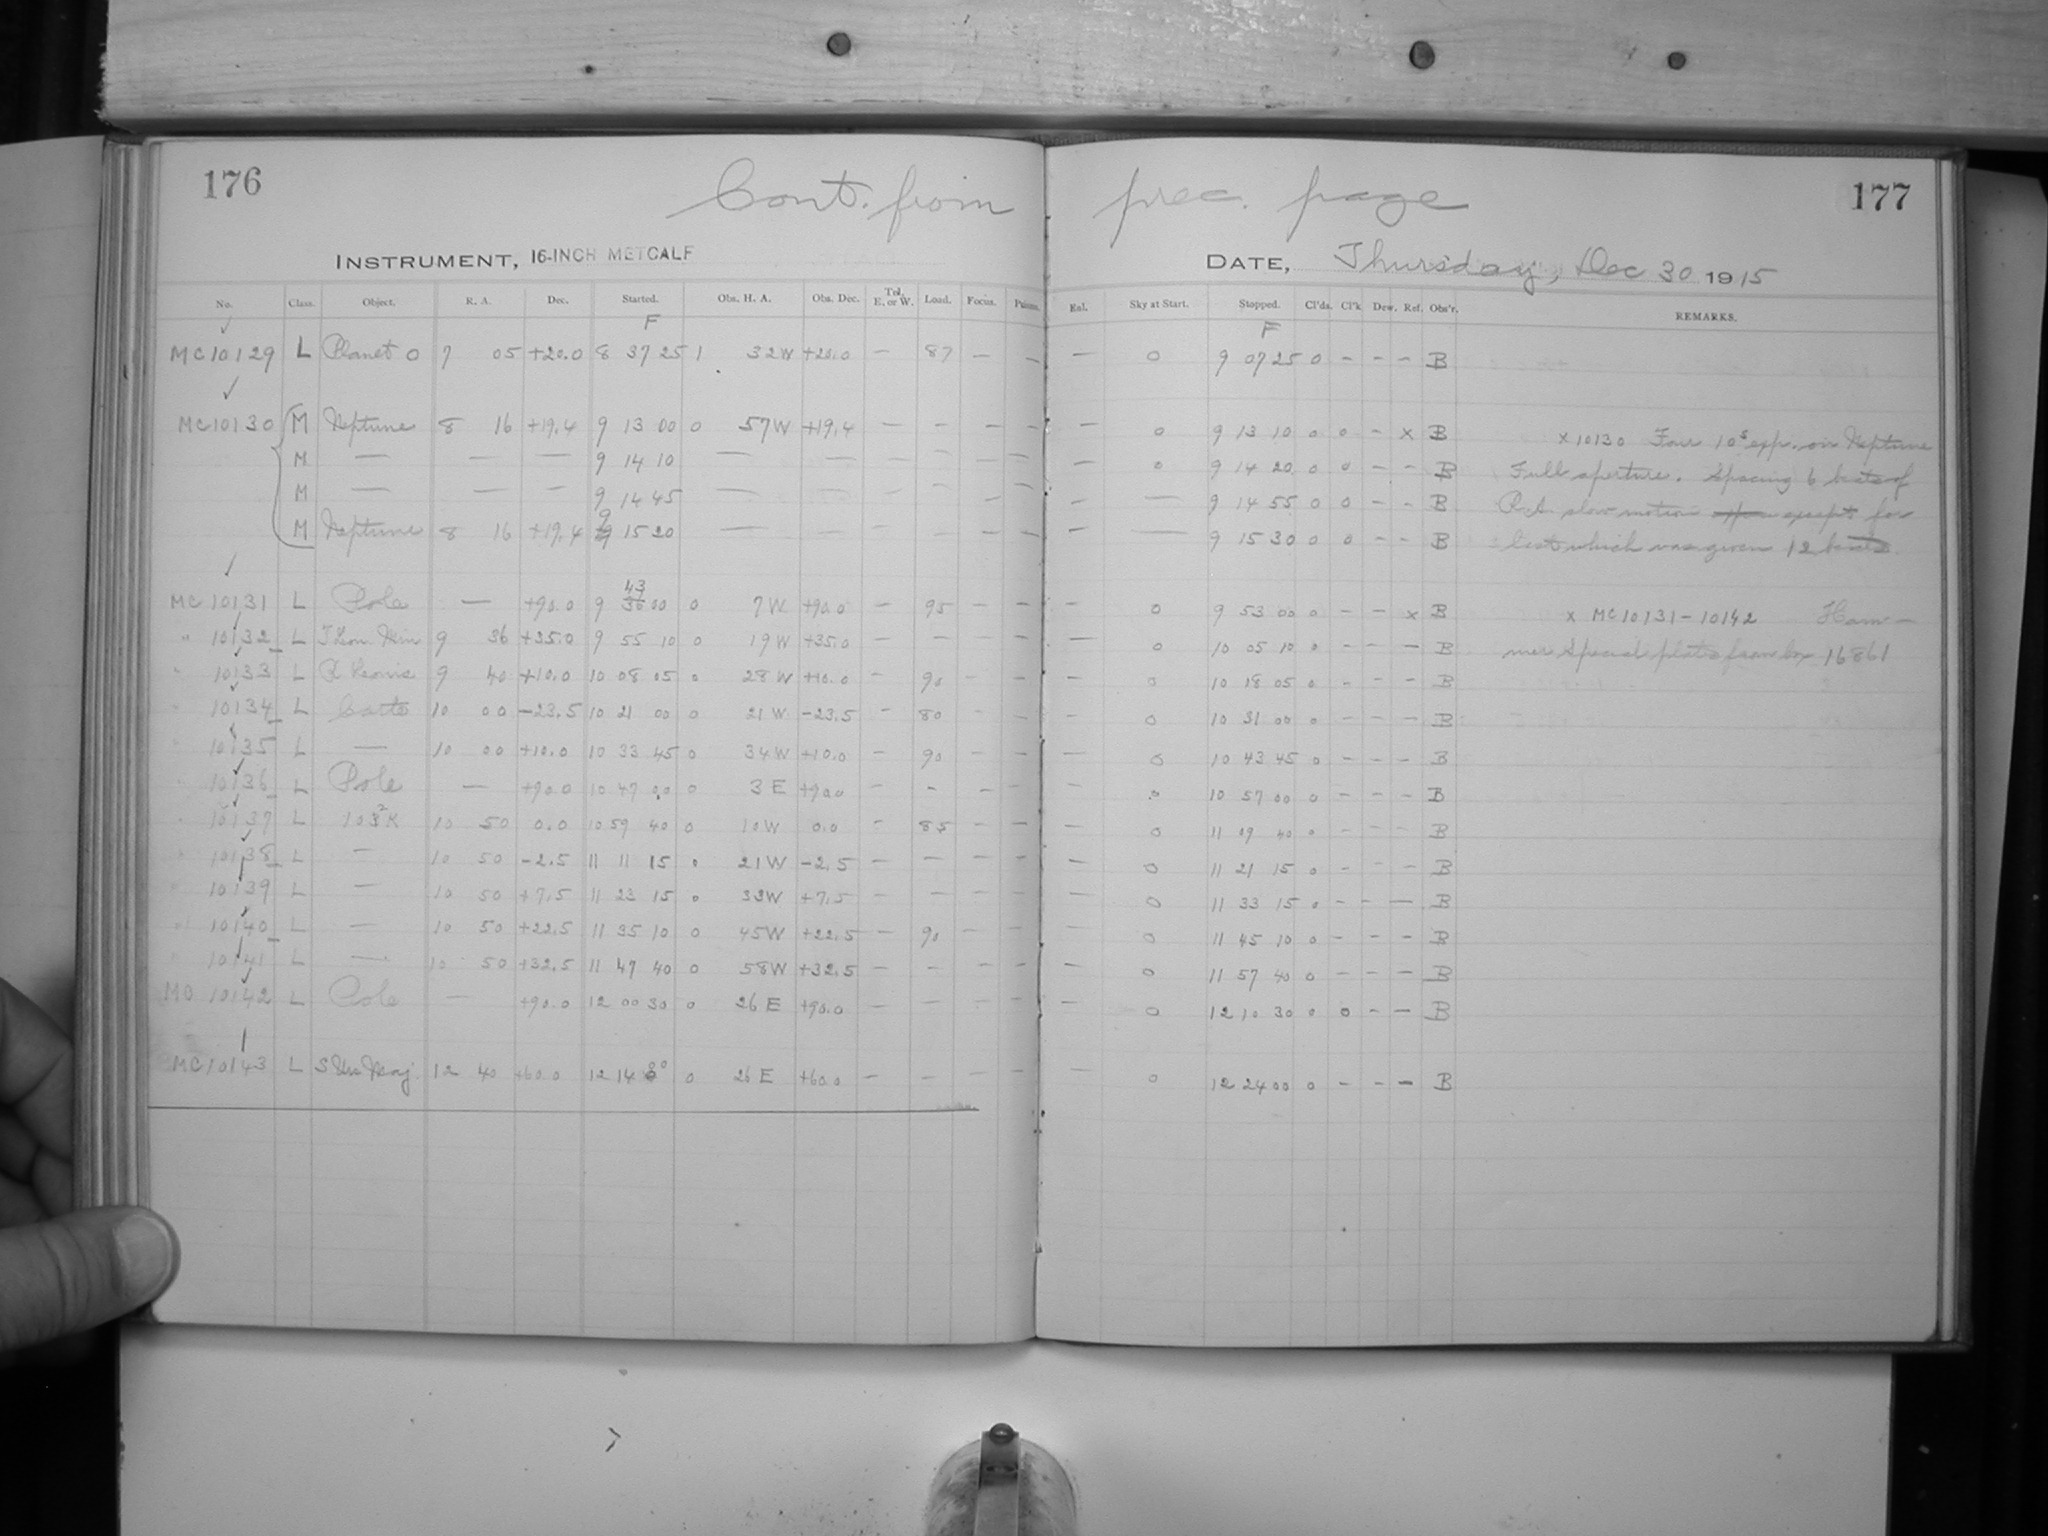 176
Cont. from prec. page
177
INSTRUMENT, 16-INCH METCALF
DATE, Thursday, Dec 30 1915
No. Class. Object. R. A. Dec. Started. Obs. H. A. Obs. Dec. Tel. E. or W. Load. Focus. Enl. Sky at Start. Stopped. Cl'ds. Cl'k Dew. Ref. Obs'r. REMARKS.
F F
MC10129 L Planet O 7 05 +20.0 8 37 25 1 32W +20.0 — 87 — — — 0 9 07 25 0 - - - B
MC10130 M Neptune 8 16 +19.4 9 13 00 0 57W +19.4 — — — — — 0 9 13 10 0 0 - x B x 10130 Four 10s exp. on Neptune
M — — — 9 14 10 — — — — — — — 0 9 14 20 0 0 - - B Full aperture. Spacing 6 beats of
M — — — 9 14 45 — — — — — — — — 9 14 55 0 0 - - B R.A. slow motion except for
M Neptune 8 16 +19.4 9 15 20 — — — — — — — 9 15 30 0 0 - - B last which was given 12 beats.
43
MC 10131 L Pole — +90.0 9 36 00 0 7W +90.0 — 95 — — — 0 9 53 00 0 - - x B x MC10131-10142 Ham-
" 10132 L 9 36 +35.0 9 55 10 0 19W +35.0 — — — — — 0 10 05 10 0 - - - B mer Special plate from box 16861
" 10133 L 9 40 +10.0 10 08 05 0 28W +10.0 — 90 — — — 0 10 18 05 0 - - - B
" 10134 L 10 00 -23.5 10 21 00 0 21W -23.5 — 80 — — — 0 10 31 00 0 - - - B
" 10135 L — 10 00 +10.0 10 33 45 0 34W +10.0 — 90 — — — 0 10 43 45 0 - - - B
" 10136 L Pole — +90.0 10 47 00 0 3 E +90.0 — — — — — 0 10 57 00 0 - - - B
" 10137 L 10 50 0.0 10 59 40 0 10W 0.0 — 85 — — — 0 11 09 40 0 - - - B
" 10138 L — 10 50 -2.5 11 11 15 0 21W -2.5 — — — — — 0 11 21 15 0 - - - B
" 10139 L — 10 50 +7.5 11 23 15 0 33W +7.5 — — — — — 0 11 33 15 0 - - - B
" 10140 L — 10 50 +22.5 11 35 10 0 45W +22.5 — 90 — — — 0 11 45 10 0 - - - B
" 10141 L — 10 50 +32.5 11 47 40 0 58W +32.5 — — — — — 0 11 57 40 0 - - - B
MC 10142 L Pole — +90.0 12 00 30 0 26 E +90.0 — — — — — 0 12 10 30 0 0 - - B
MC10143 L S Urs Maj. 12 40 +60.0 12 14 00 0 26 E +60.0 — — — — — 0 12 24 00 0 - - - B